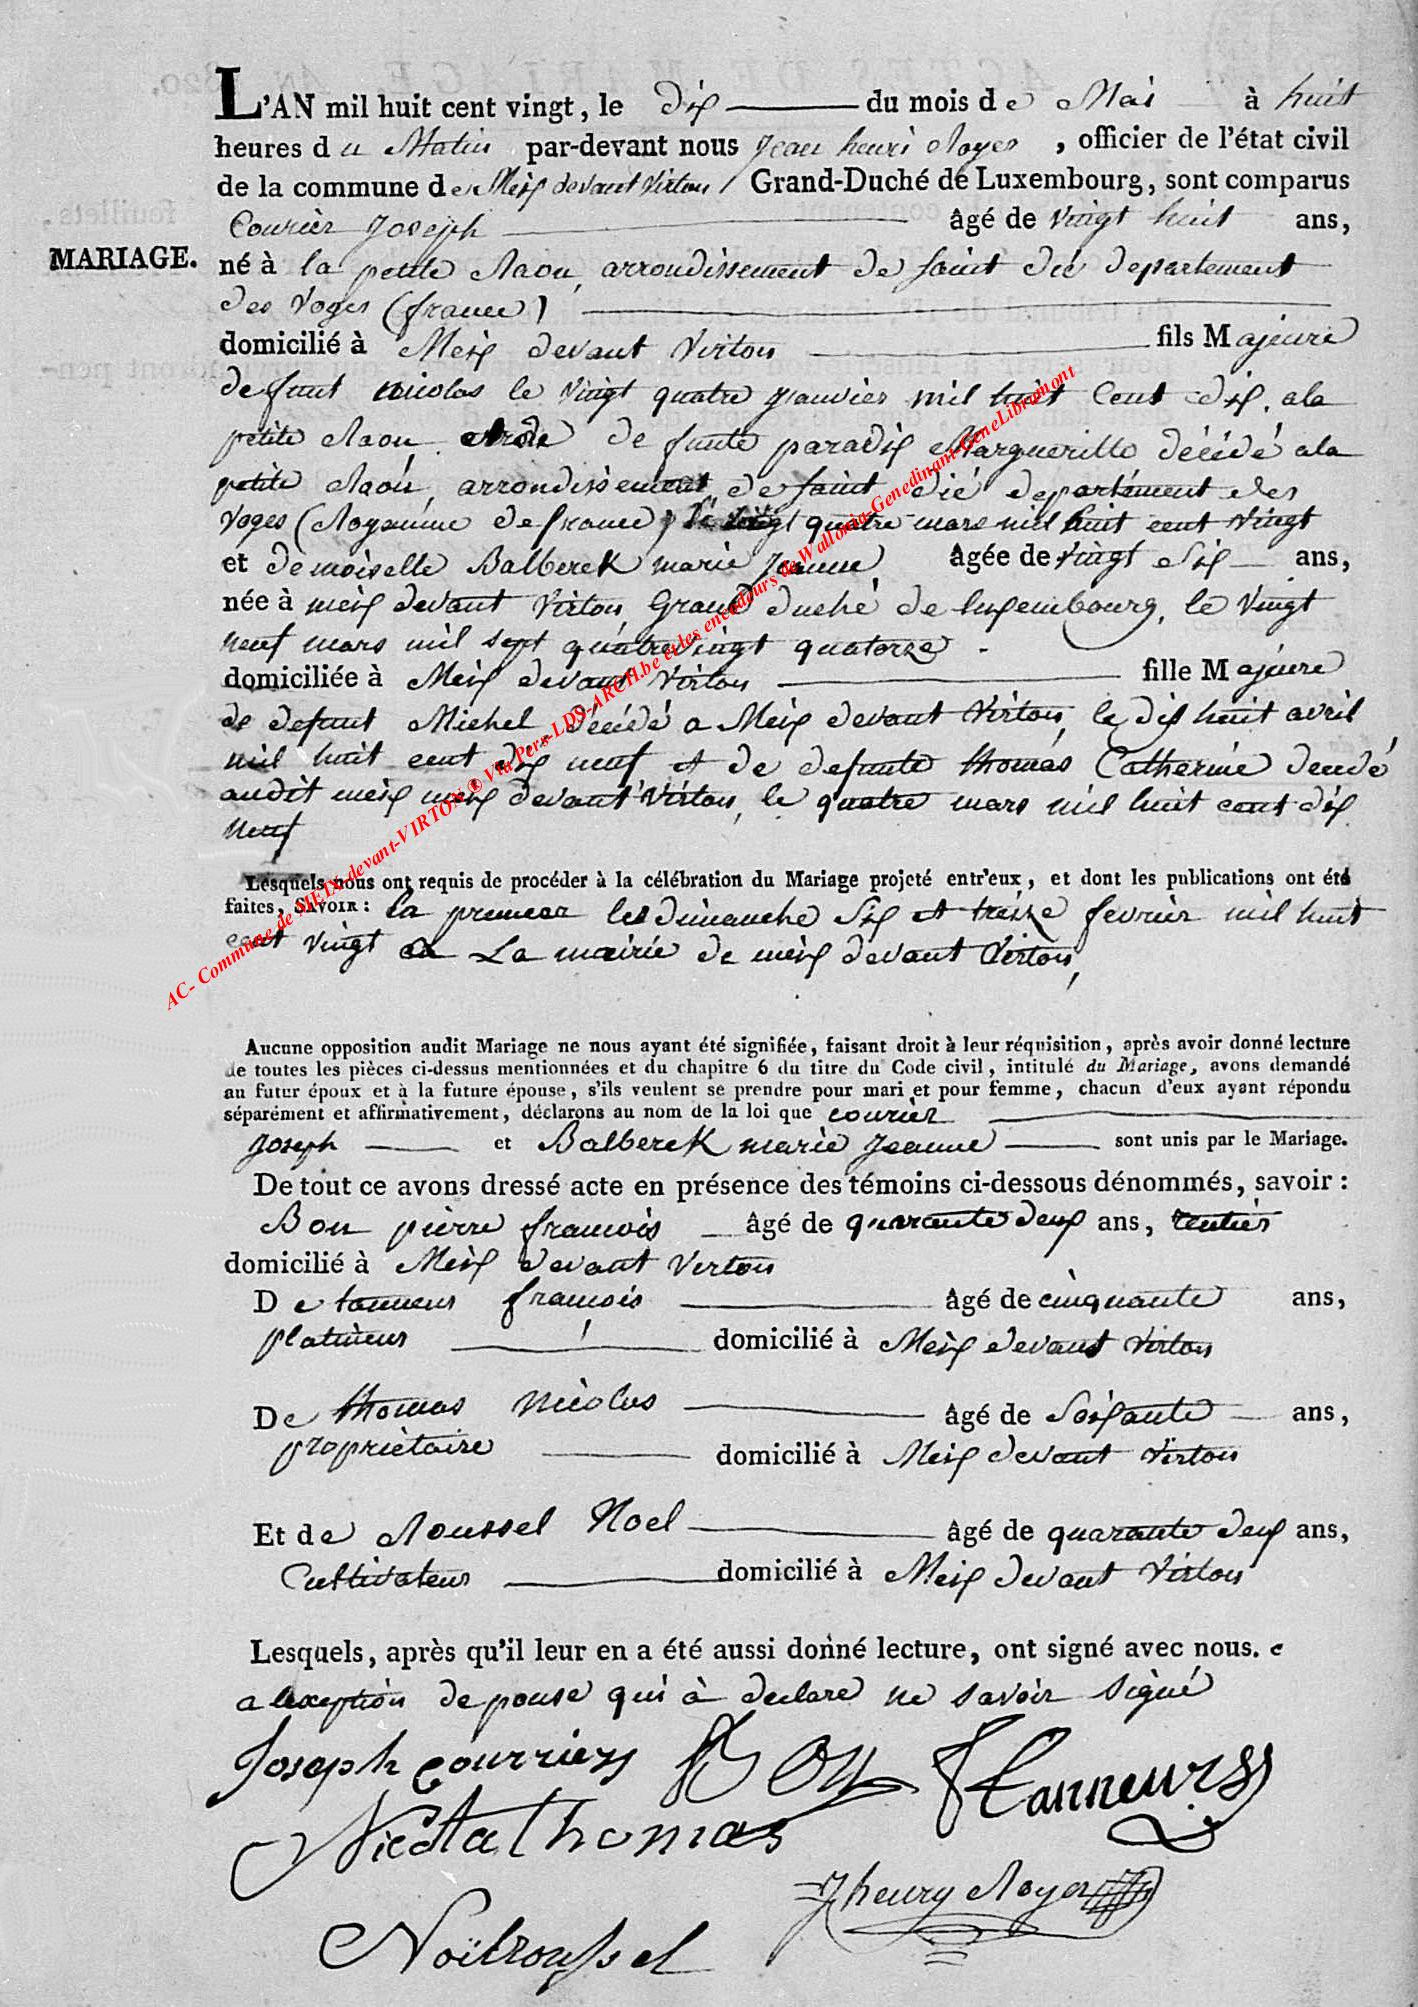 L'AN mil huit cent vingt, le dix du mois de Mai à huit
heures du Matin par-devant nous Jean henri Royer, officier de l'état civil
de la commune de Meix devant Virton, Grand-Duché de Luxembourg, sont comparus
Courier Joseph âgé de vingt huit ans,
MARIAGE.
né à la petite Raou, arrondissement de saint dié departement
des Voges (france)
domicilié à Meix devant Virton fils Majeure
defunt nicolas le vingt quatre janvier mil huit Cent dix. ala
petite Raou de funte paradix Margueritte décédé ala
petite Raou, arrondissement de saint dié departement des
Voges (Royaume de france) le vingt quatre mars mil huit cent vingt
et demoiselle Balberek marie Jeanne âgée de vingt six ans,
née à meix devant Virton, Grand duché de luxembourg, le vingt
neuf mars mil sept quatrevingt quatorze.
domiciliée à Meix devant Virton fille Majeure
de defunt Michel décédé a Meix devant Virton, le dix huit avril
mil huit cent dix neuf et de defunte thomas Catherine decedé
audit meix meix devant Virton, le quatre mars mil huit cent dix
neuf
Lesquels nous ont requis de procéder à la célébration du Mariage projeté entr'eux, et dont les publications ont été
faites, SAVOIR: la premeer les dimanche Six et treize fevrier mil huit
cent vingt a La mairie de meix devant Virton,
Aucune opposition audit Mariage ne nous ayant été signifiée, faisant droit à leur réquisition, après avoir donné lecture
de toutes les pièces ci-dessus mentionnées et du chapitre 6 du titre du Code civil, intitulé du Mariage, avons demandé
au futur époux et à la future épouse, s'ils veulent se prendre pour mari et pour femme, chacun d'eux ayant répondu
séparément et affirmativement, déclarons au nom de la loi que courier
Joseph et Balberek marie Jeanne sont unis par le Mariage.
De tout ce avons dressé acte en présence des témoins ci-dessous dénommés, savoir:
Bon pierre francois âgé de quarante deux ans, rentier
domicilié à Meix devant Virton
De tanneur françois âgé de cinquante ans,
platineur domicilié à Meix devant Virton
De thomas Nicolas âgé de Soixante ans,
propriètaire domicilié à Meix devant Virton
Et de Roussel Noel âgé de quarante deux ans,
Cultivateur domicilié à Meix devant Virton
Lesquels, après qu'il leur en a été aussi donné lecture, ont signé avec nous. e
a lexeption de pouse qui à declare ne savoir signé
Joseph courriers Bon F tanneurs
Nicola thomas
Jhenry Royer
Noël roussel
AC- Commune de MEIX-devant-VIRTON ® Via Pers-LDS-ARCH.be et les encodeurs de Wallonia-Genedinant-GeneLibramont